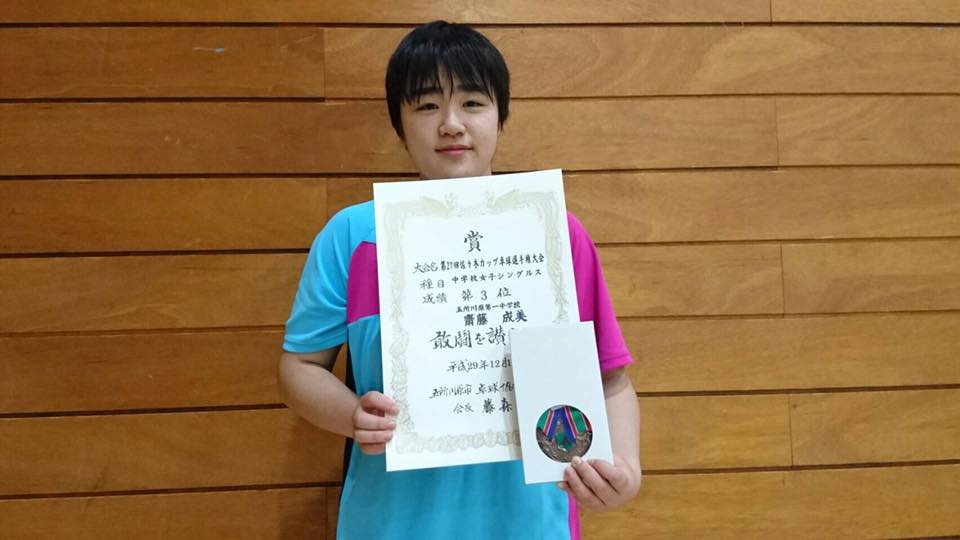 賞
大会名 第27回佐々木カップ卓球選手権大会
種目 中学校女子シングルス
成績 第3位
五所川原第一中学校
齋藤 成美
敢闘を讃
平成29年12
五所川原市 卓球
会長 藤森